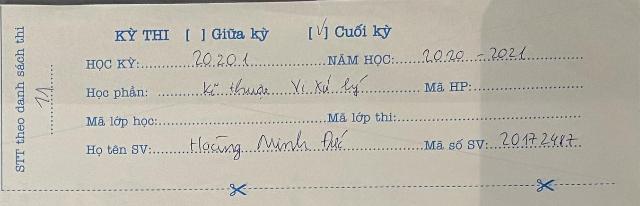 STT theo danh sách thi 11
KỲ THI [ ] Giữa kỳ [√] Cuối kỳ
HỌC KỲ: 20201 NĂM HỌC: 2020 - 2021
Học phần: Kĩ thuật Vi xử lý Mã HP:
Mã lớp học: Mã lớp thi:
Họ tên SV: Hoàng Minh Đức Mã số SV: 20172487